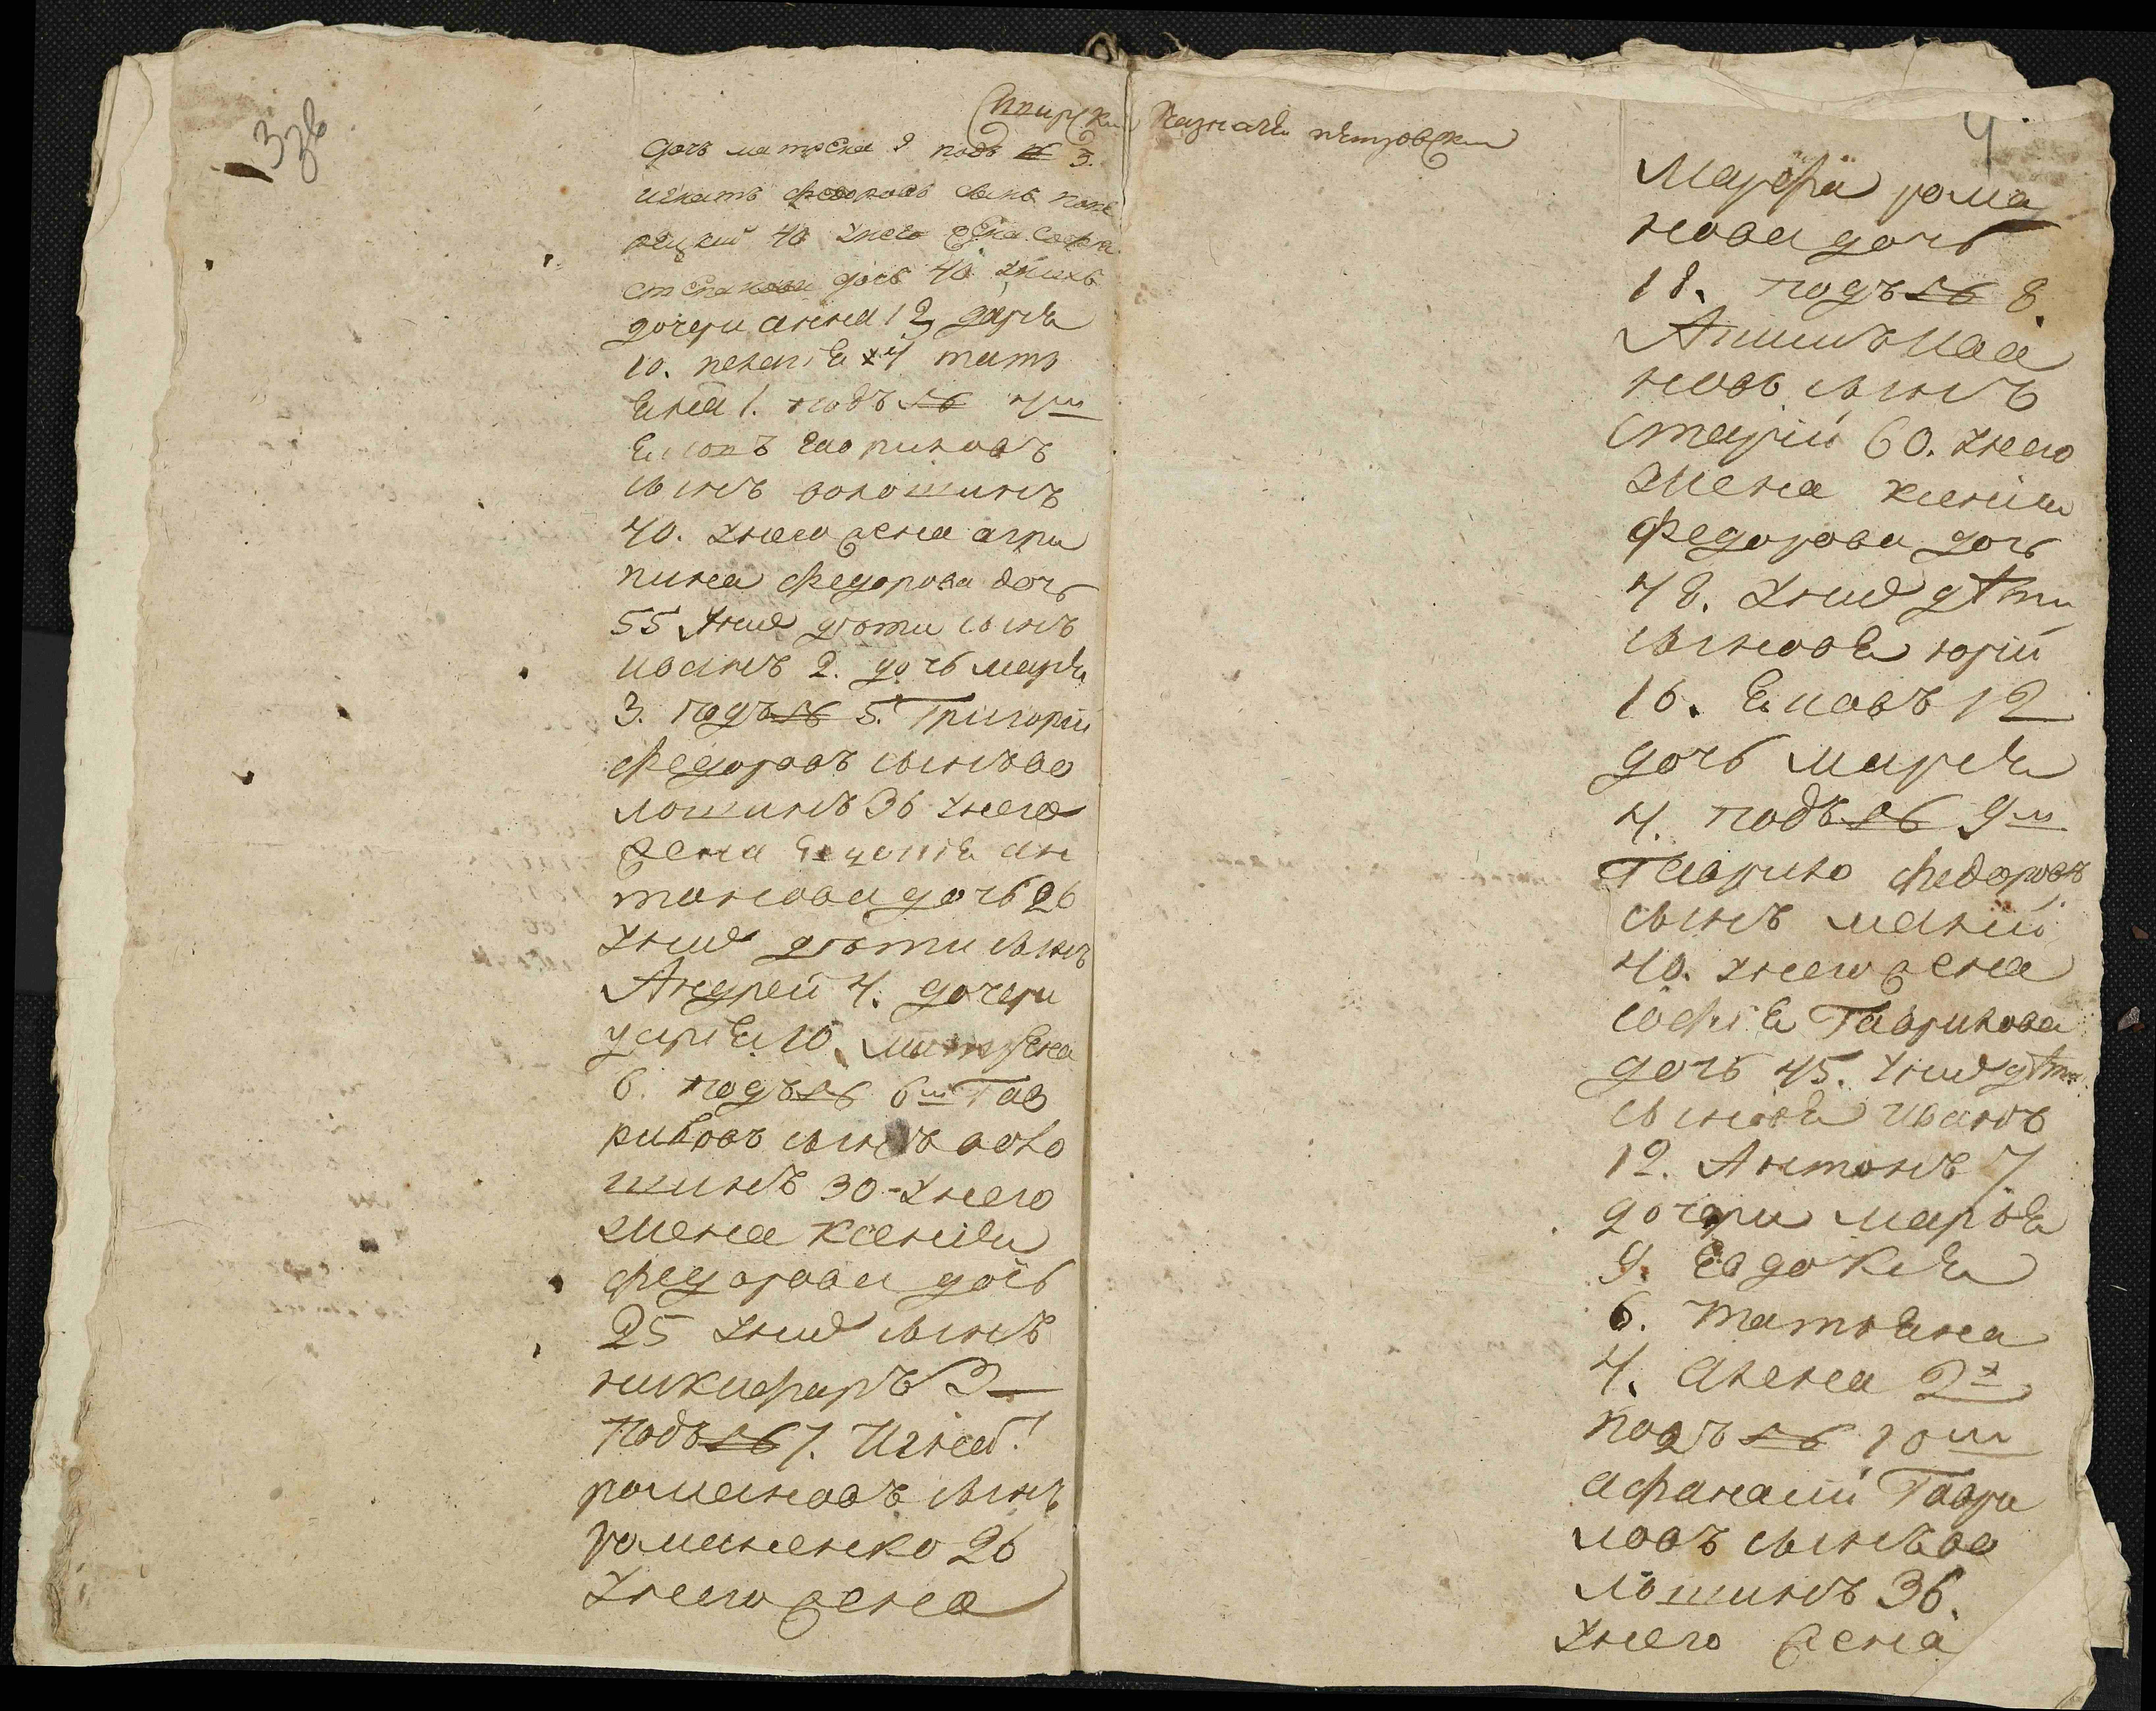 3зв
4
дочь матрена 9 подъ № 3.
игнатъ федоровъ сынъ
40 унего жена
дочь 40 унихъ
дочери анна 12 дарья
10. пелагея 4 тать
яна 1. подъ № 4м
гавриловъ
сынъ волошинъ
40. унего жена агри
пина федорова дочь
55 унихъ дѣти сынъ
иванъ 2. дочь марья
3. подъ № 5. Григорий
федоровъ сынъ во
лошинъ 36 унего
жена ан
тонова дочь 26
унихъ дѣти сынъ
Андрей 4. дочери
10. матрена
6. подъ № 6м Гав
риловъ сынъ воло
шинъ 30 - унего
жена ксенiя
федорова дочь
25 унихъ сынъ
никифоръ 3
подъ № 7. Игнат
романовъ сынъ
романенко 26
унего жена
Марфа рома
нова дочь
18. подъ № 8.
ива
новъ сынъ
старiй 60. унего
жена ксенiя
федорова дочь
48. унихъ дѣти
сыновя юрiй
16. Яковъ 12
дочь марья
4. подъ № 9м
Гаврило федоровъ
сынъ
40. унего жена
софiя Гаврилова
дочь 45. унихъ дѣти
сыновя иванъ
12. Антонъ 7
дочери марья
9. Евдокия
6. татьяна
4. анна 2х
подъ № 10м
афанасий Гаври
ловъ сынъ во
лошинъ 36.
унего жена